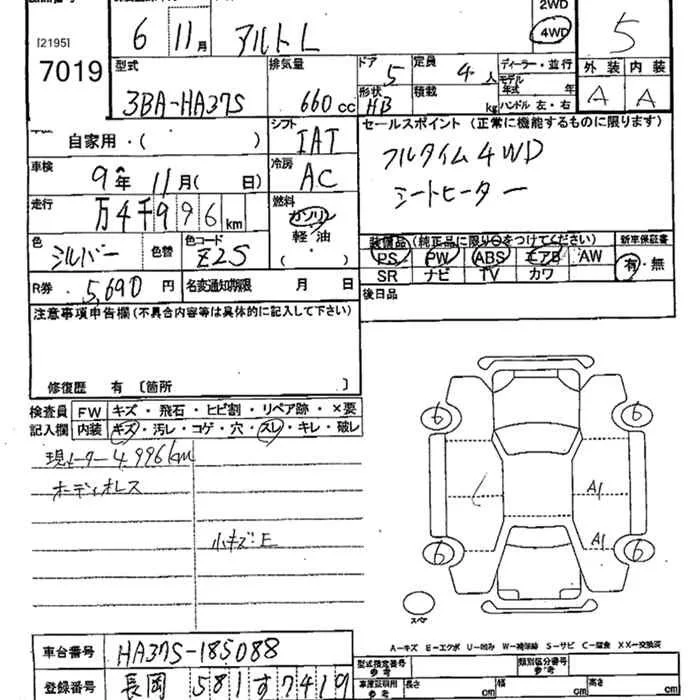 [2195]
7019
6 11月
アルト L
2WD
4WD
5
外装 内装
A A
型式
3BA-HA37S
排気量
660cc
ドア 5
定員 4人
形状 HB
積載 kg
ディーラー・並行
モデル年式 年
ハンドル 左・右
自家用・( )
シフト
IAT
セールスポイント (正常に機能するものに限ります)
フルタイム4WD
シートヒーター
車検
9年 11月( 日)
冷房
AC
走行
万4千996km
燃料
ガソリン
軽・油
( )
色
シルバー
色替
色コード
Z2S
装備品 (純正品に限り○をつけてください)
新車保証書
PS PW ABS エアB AW
SR ナビ TV カワ
有・無
R券 5,690円
名変通知期限 月 日
後日品
注意事項申告欄 (不具合内容等は具体的に記入して下さい)
修復歴 有 〔箇所 〕
検査員 FW キズ・飛石・ヒビ割・リペア跡・×要
記入欄 内装 キズ・汚レ・コゲ・穴・スレ・キレ・破レ
現メーター4,996km
オーディオレス
小キズE
6 6
A1
A1
6 6
スペア
A－キズ E－エクボ U－凹み W－補修跡 S－サビ C－腐食 XX－交換済
車台番号 HA37S-185088
登録番号 長岡 581す7419
型式指定番号 参考
類別区分番号 参考
車庫証明用 参考
長さ cm
幅 cm
高さ cm